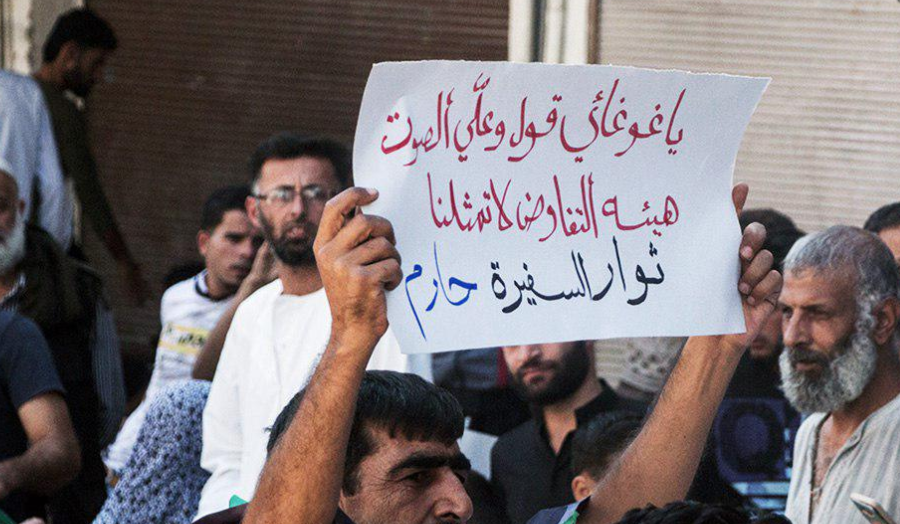 ياغوغائي قول وعلّي ألصوت
هيئه التفاوض لاتمثلنا
ثوار السفيرة حارم